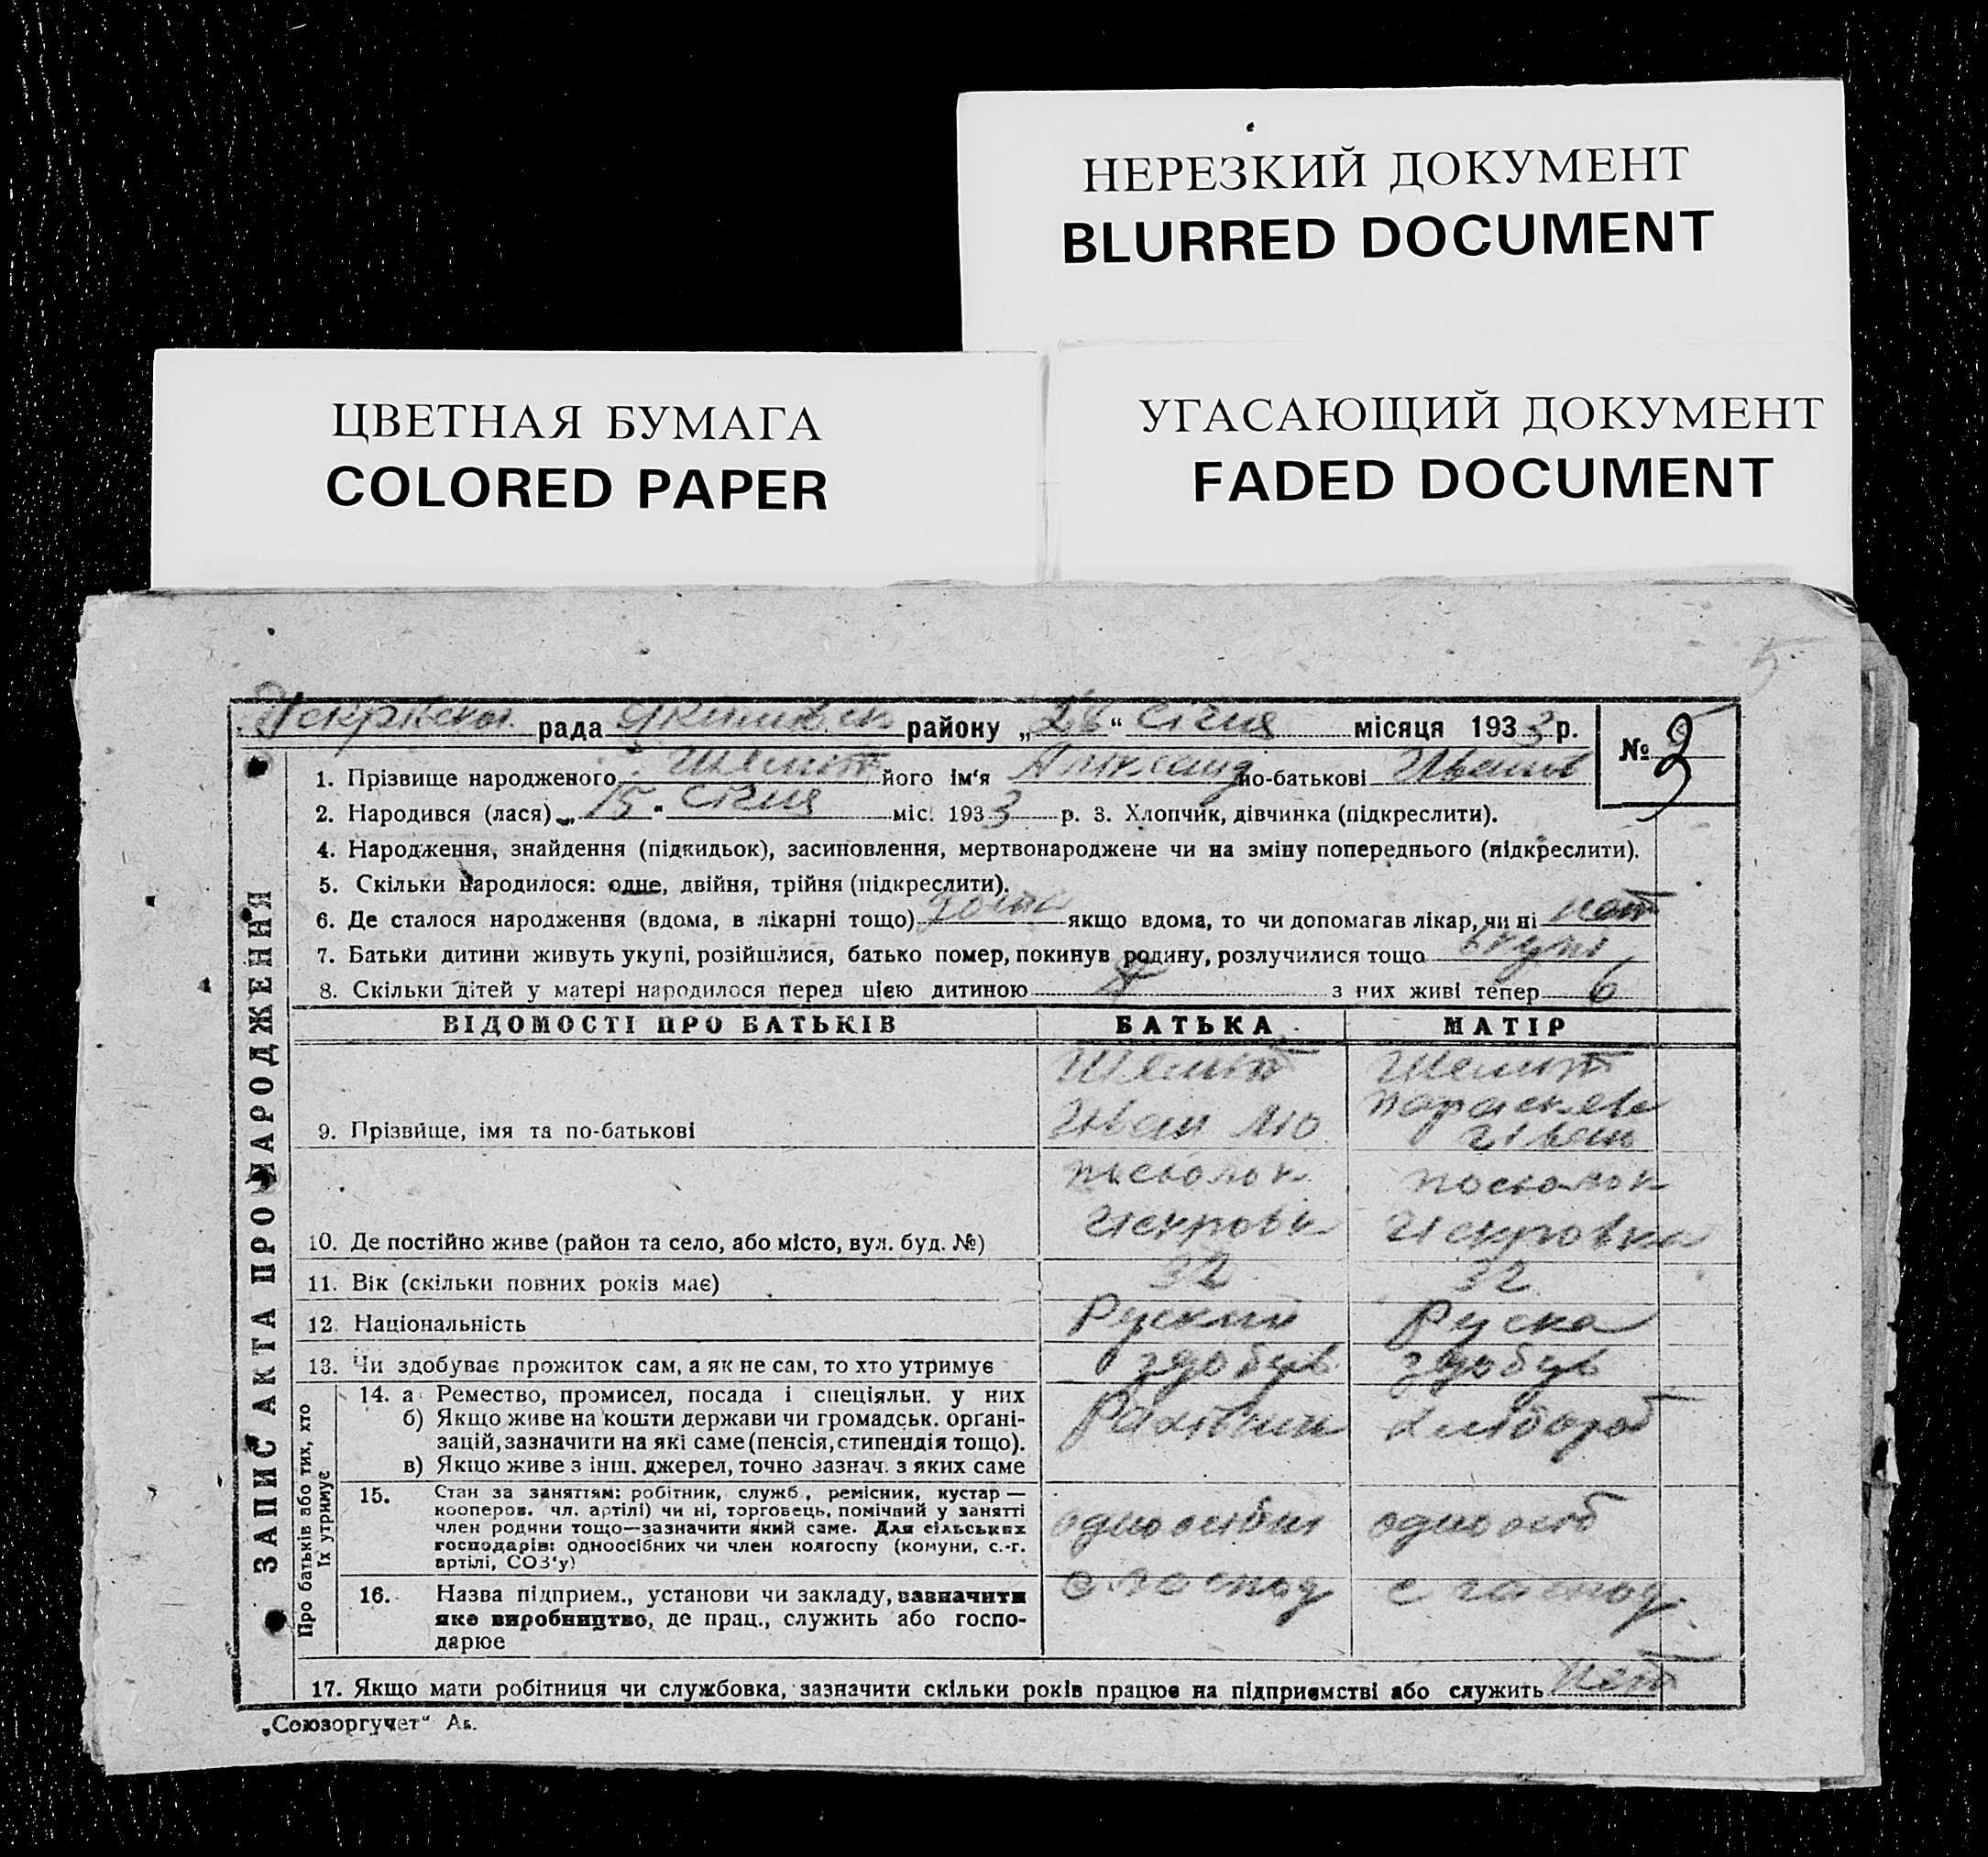 НЕРЕЗКИЙ ДОКУМЕНТ
BLURRED DOCUMENT
ЦВЕТНАЯ БУМАГА
COLORED PAPER
УГАСАЮЩИЙ ДОКУМЕНТ
FADED DOCUMENT
5
рада району „28“ Січня місяця 1933 р.
№ 3
1. Прізвище народженого його ім‘я по-батькові Иванов
2. Народився (лася) „15“ Січня міс. 1933 р. 3. Хлопчик, дівчинка (підкреслити).
4. Народження, знайдення (підкидьок), засиновлення, мертвонароджене чи на зміну попереднього (підкреслити).
5. Скільки народилося: одне, двійня, трійня (підкреслити).
6. Де сталося народження (вдома, в лікарні тощо) дома якщо вдома, то чи допомагав лікар, чи ні нет
7. Батьки дитини живуть укупі, розійшлися, батько помер, покинув родину, розлучилися тощо вкупі
8. Скільки дітей у матері народилося перед цією дитиною з них живі тепер 6
ВІДОМОСТІ ПРО БАТЬКІВ БАТЬКА МАТІР
9. Прізвище, імя та по-батькові Иван
10. Де постійно живе (район та село, або місто, вул. буд. №) Искровк Искровка
11. Вік (скільки повних років має) 32 32
12. Національність Руский Руска
13. Чи здобуває прожиток сам, а як не сам, то хто утримує здобув здобув
14. а Ремество, промисел, посада і спеціяльн. у них
б) Якщо живе на кошти держави чи громадськ. орґані-
зацій, зазначити на які саме (пенсія, стипендія тощо).
в) Якщо живе з інш. джерел, точно зазнач. з яких саме
хлібороб
15. Стан за заняттям: робітник, служб., ремісник, кустар —
кооперов. чл. артілі) чи ні, торговець, помічний у занятті
член родини тощо—зазначити який саме. Для сільських
господарів: одноосібних чи член колгоспу (комуни, с.-г.
артілі, СОЗ‘у)
одноосібни одноосіб
16. Назва підприєм., установи чи закладу, зазначити
яке виробництво, де прац., служить або госпо-
дарює
с господ с господ
17. Якщо мати робітниця чи службовка, зазначити скільки років працює на підприємстві або служить нет
„Союзоргучет“
ЗАПИС АКТА ПРО НАРОДЖЕННЯ
Про батьків або тих, хто
їх утримує